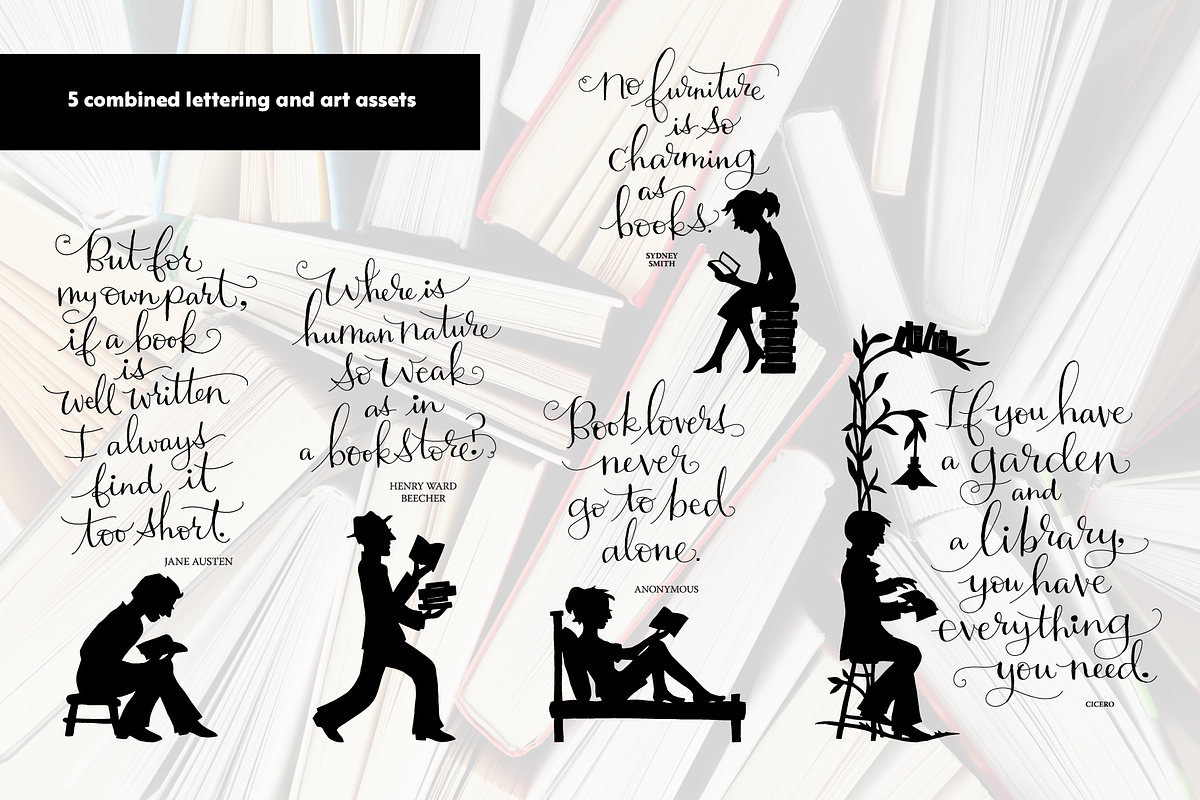 5 combined lettering and art assets
No furniture
is so
charming
as
books.
SYDNEY
SMITH
But for
my own part,
if a book
is
well written
I always
find it
too short.
JANE AUSTEN
Where is
human nature
so weak
as in
a bookstore?
HENRY WARD
BEECHER
Book lovers
never
go to bed
alone.
ANONYMOUS
If you have
a garden
and
a library,
you have
everything
you need.
CICERO